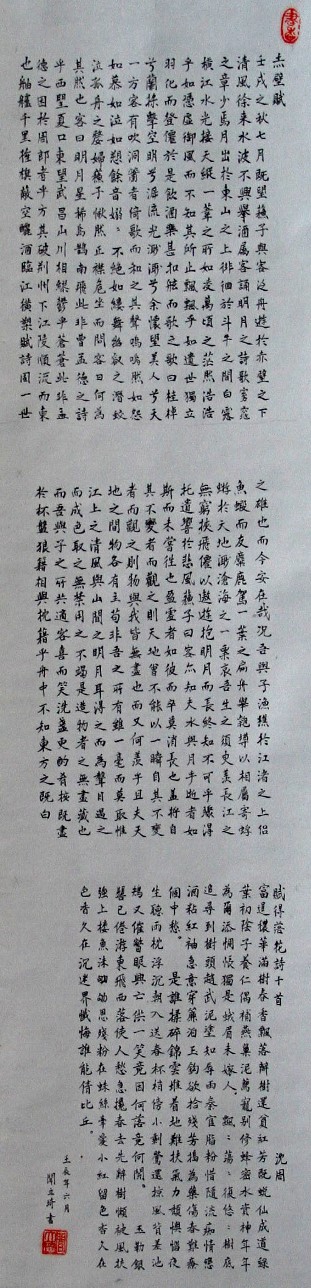 赤壁賦
壬戌之秋七月既望蘇子與客泛舟遊於赤壁之下
清風徐來水波不興舉酒屬客誦明月之詩歌窈窕
之章少焉月出於東山之上徘徊於斗牛之間白露
橫江水光接天縱一葦之所如凌萬頃之茫然浩浩
乎如憑虛御風而不知其所止飄飄乎如遺世獨立
羽化而登僊於是飲酒樂甚扣舷而歌之歌曰桂棹
兮蘭槳擊空明兮泝流光渺渺兮余懷望美人兮天
一方客有吹洞簫者倚歌而和之其聲嗚嗚然如怨
如慕如泣如愬餘音嫋〻不絕如縷舞幽壑之潛蛟
泣孤舟之嫠婦蘇子愀然正襟危坐而問客曰何為
其然也客曰明月星稀烏鵲南飛此非曹孟德之詩
乎西望夏口東望武昌山川相繆鬱乎蒼蒼此非孟
德之困於周郎者乎方其破荊州下江陵順流而東
也舳艫千里旌旗蔽空釃酒臨江橫槊賦詩固一世
之雄也而今安在哉況吾與子漁樵於江渚之上侶
魚蝦而友麋鹿駕一葉之扁舟舉匏樽以相屬寄蜉
蝣於天地渺滄海之一粟哀吾生之須臾羨長江之
無窮挾飛僊以遨遊抱明月而長終知不可乎驟得
托遺響於悲風蘇子曰客亦知夫水與月乎逝者如
斯而未嘗往也盈虛者如彼而卒莫消長也蓋將自
其不變者而觀之則天地曾不能以一瞬自其不變
者而觀之則物與我皆無盡也而又何羨乎且夫天
地之間物各有主苟非吾之所有雖一毫而莫取惟
江上之清風與山間之明月耳得之而為聲目遇之
而成色取之無禁用之不竭是造物者之無盡藏也
而吾與子之所共適客喜而笑洗盞更酌肴核既盡
於杯盤狼籍相與枕藉乎舟中不知東方之既白
賦得落花詩十首 沈周
富逞穠華滿樹春香飄落瓣樹還貧紅芳既蛻仙成道綠
葉初陰子養仁偶補燕巢泥薦寵別修蜂蜜水資神年年
為爾添惆悵獨是娥眉未嫁人 飄〻蕩〻復悠〻樹底
追尋到樹頭趙武泥塗知辱雨秦宮脂粉惜隨流痴情戀
酒粘紅袖急意穿簾泊玉鈎欲拾殘芳搗為藥傷春難療
個中愁 是誰揉碎錦雲堆着地難扶氣力頹懊惱夜
生聽雨枕浮沉朝入送春杯梢傍小剩鶯還掠風背差池
鴿又催瞥眼興亡供一笑竟因何落竟何開 玉勒銀
罌已倦游東飛西落使人愁急攙春去先辭樹懶被風扶
強上樓魚沫恩殘粉在蛛絲牽愛小紅留色香久在
色香久在沉迷界懺悔誰能倩比丘
壬辰年六月